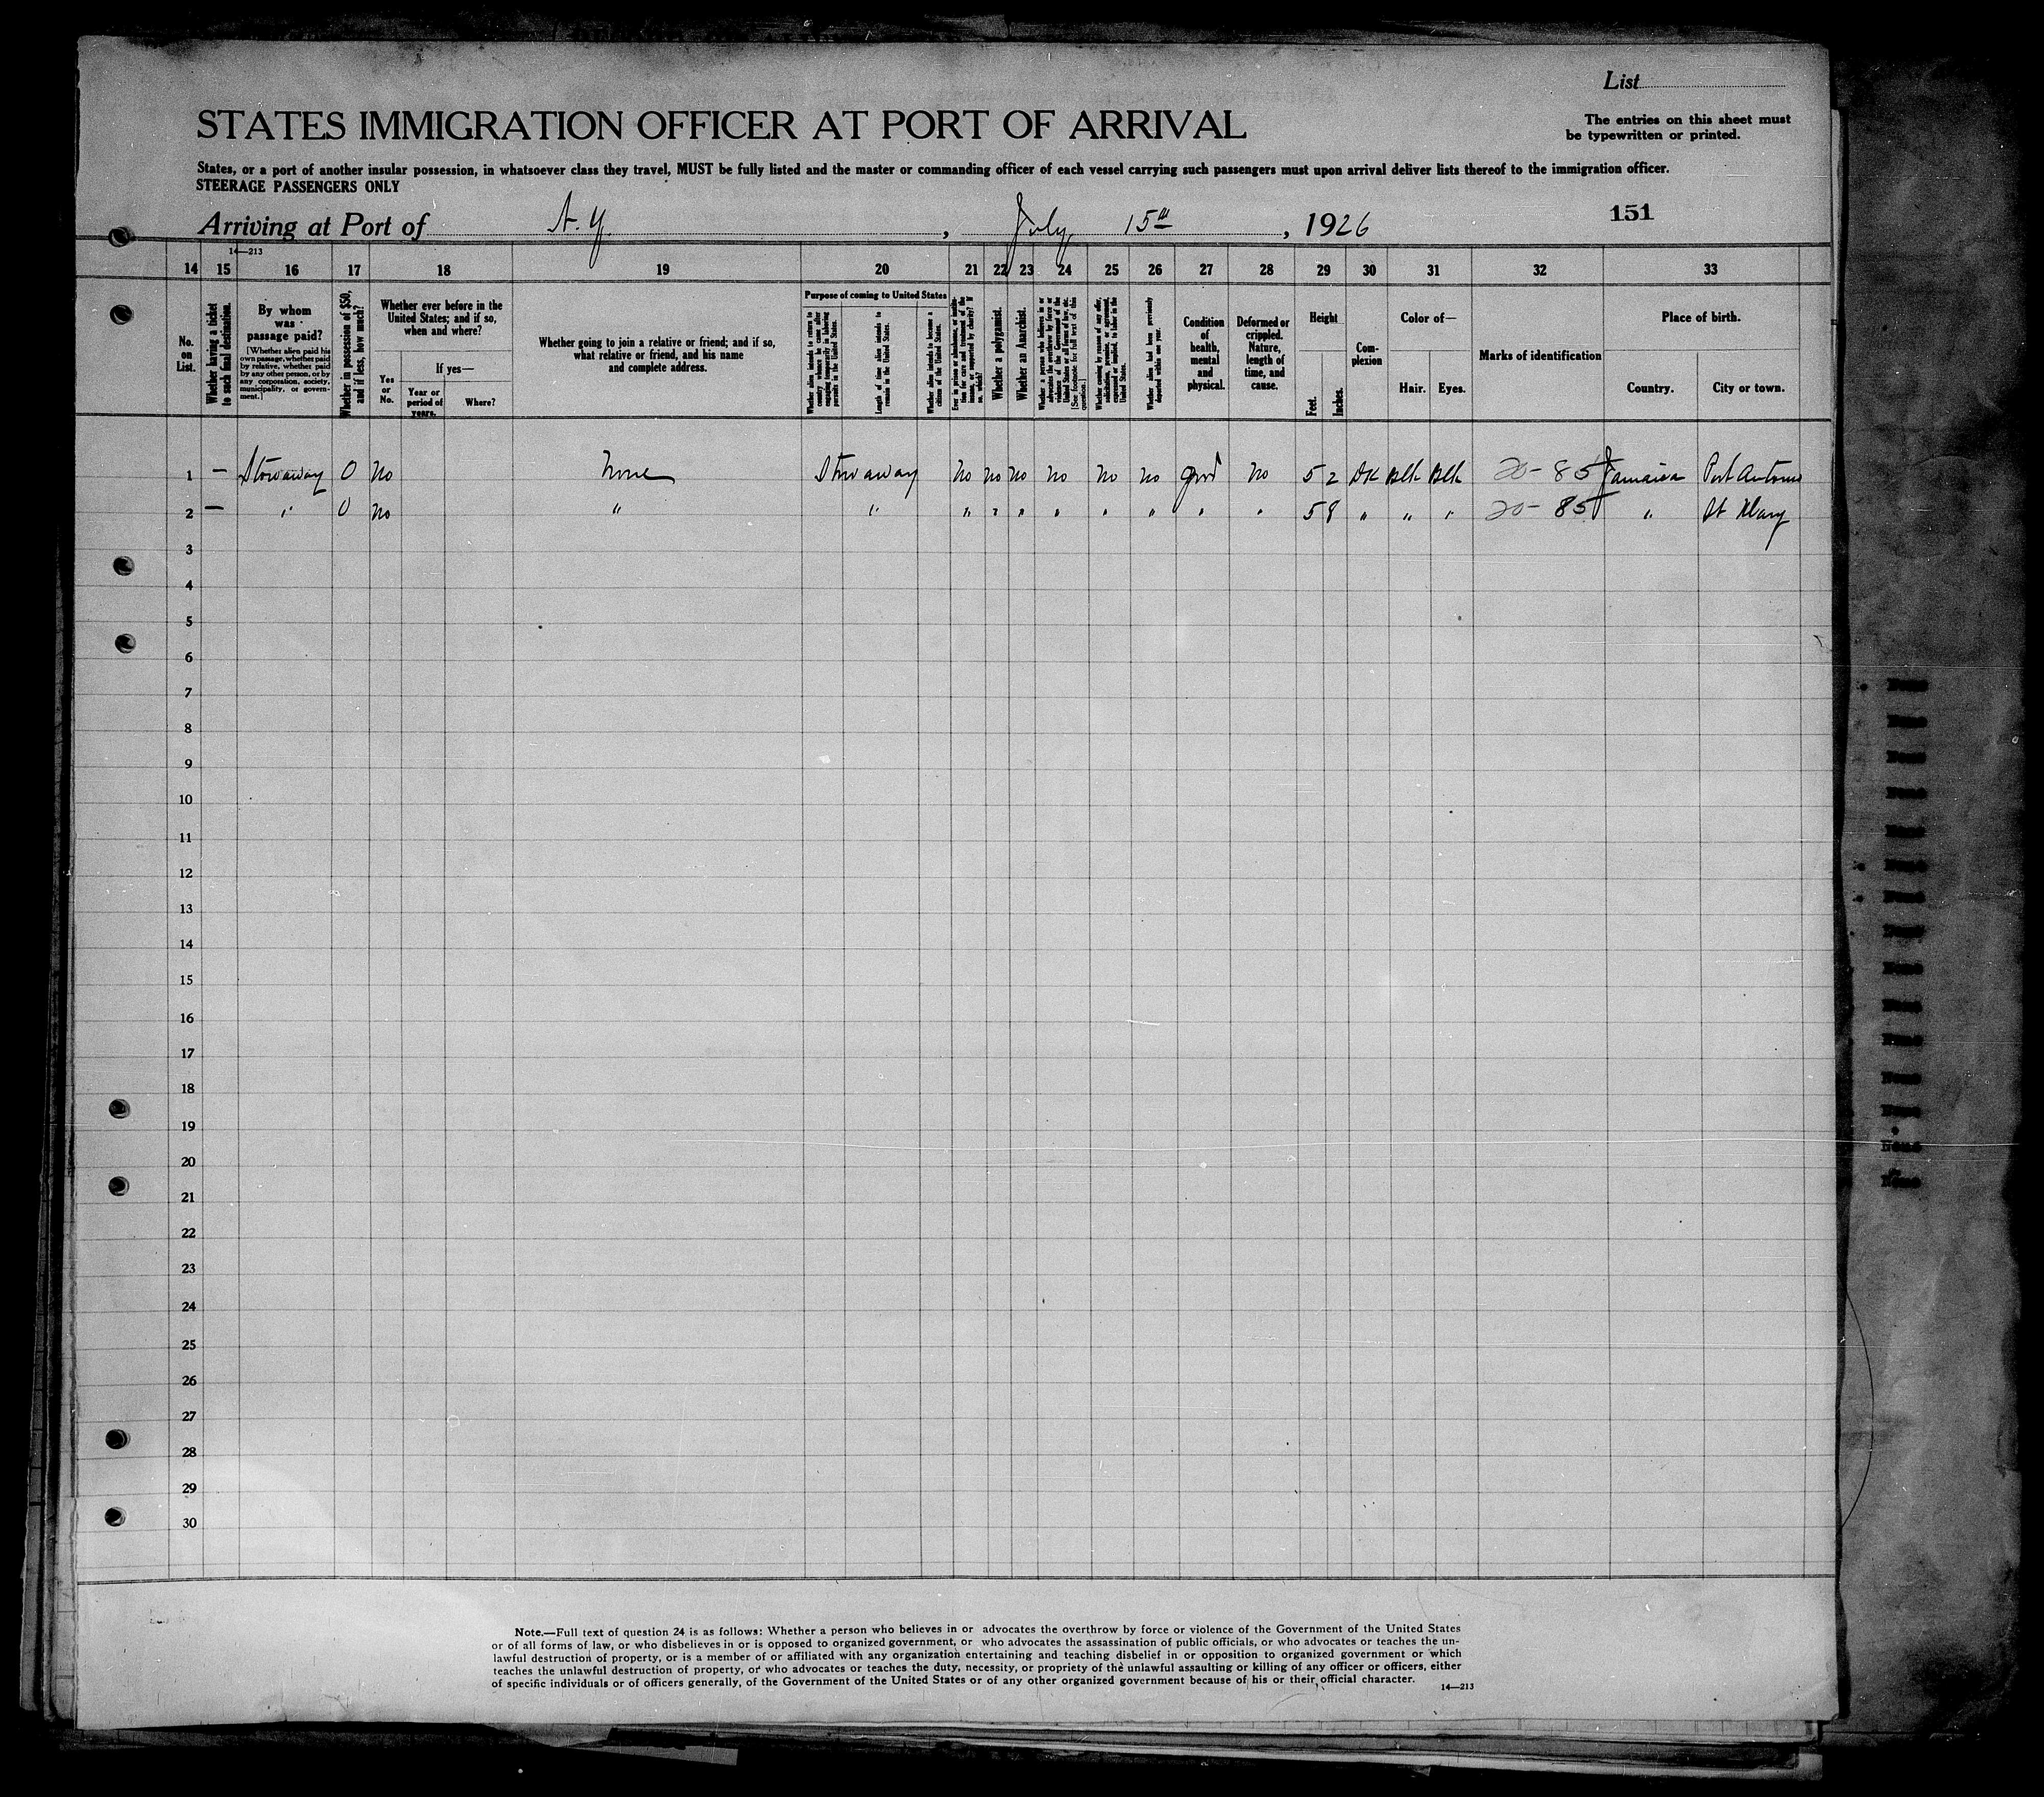 List
STATES IMMIGRATION OFFICER AT PORT OF ARRIVAL
The entries on this sheet must
be typewritten or printed.
States, or a port of another insular possession, in whatsoever class they travel, MUST be fully listed and the master or commanding officer of each vessel carrying such passengers must upon arrival deliver lists thereof to the immigration officer.
STEERAGE PASSENGERS ONLY
Arriving at Port of N. Y. , July 15th , 1926
151
14—213
14 15 16 17 18 19 20 21 22 23 24 25 26 27 28 29 30 31 32 33
No. on List.
Whether having a ticket to such final destination.
By whom was passage paid?
[Whether alien paid his own passage, whether paid by relative, whether paid by any other person, or by any corporation, society, municipality, or government.]
Whether in possession of $50, and if less, how much?
Whether ever before in the United States; and if so, when and where?
Yes or No.
If yes—
Year or period of years.
Where?
Whether going to join a relative or friend; and if so, what relative or friend, and his name and complete address.
Purpose of coming to United States
Length of time alien intends to remain in the United States.
Whether alien intends to become a citizen of the United States.
Whether a polygamist.
Whether an Anarchist.
Whether alien had been previously deported within one year.
Condition of health, mental and physical.
Deformed or crippled. Nature, length of time, and cause.
Height
Feet. Inches.
Complexion
Color of—
Hair. Eyes.
Marks of identification
Place of birth.
Country. City or town.
1 — Stowaway 0 No None Stowaway No No No No No No Good No 5 2 DK Blk Blk 20-85 Jamaica Port Antonio
2 — " 0 No " " " " " " " " " " 5 8 " " " 20-85 " St Mary
3
4
5
6
7
8
9
10
11
12
13
14
15
16
17
18
19
20
21
22
23
24
25
26
27
28
29
30
Note.—Full text of question 24 is as follows: Whether a person who believes in or advocates the overthrow by force or violence of the Government of the United States
or of all forms of law, or who disbelieves in or is opposed to organized government, or who advocates the assassination of public officials, or who advocates or teaches the un-
lawful destruction of property, or is a member of or affiliated with any organization entertaining and teaching disbelief in or opposition to organized government or which
teaches the unlawful destruction of property, or who advocates or teaches the duty, necessity, or propriety of the unlawful assaulting or killing of any officer or officers, either
of specific individuals or of officers generally, of the Government of the United States or of any other organized government because of his or their official character.
14—213